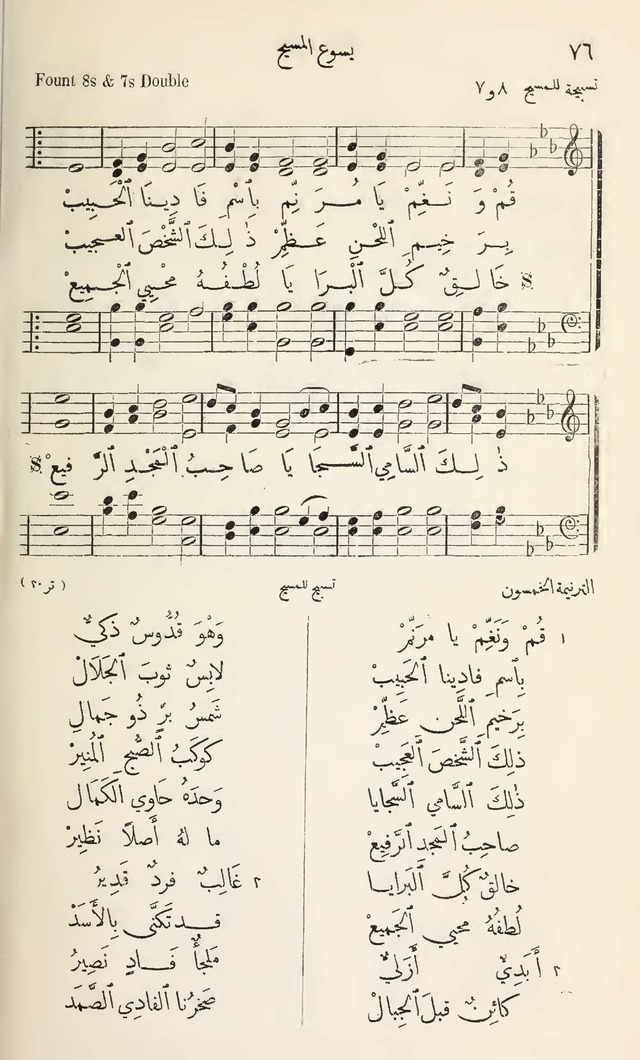 ٧٦
يسوع المسيح
تسبيحة للمسيح ٨ و ٧
Fount 8s & 7s Double
قُمْ وَ نَـغِّمْ يَا مُـرَ نِّم بِٱسْمِ فَا دِينَا ٱلْحَبِيبْ
بِـرَ خِيمِ اللَّحْنِ عَـظِّمْ ذٰ لِـكَ ٱلشَّخْصَ ٱلعـجيبْ
خَا لِـقٌ كُـلَّ ٱلْبَرَا يَا لُطْـفُـهُ محْيِي ٱلجَـمِيعْ
ذٰ لِـكَ ٱلسَّامِي ٱلسَّـجَا يَا صَا حِـبُ ٱلْمَجْدِ ٱلرَّ فيعْ
الترنيمة الخمسون
تسبيح للمسيح
( تر ٢٠ )
١ قُمْ وَنَغِّمْ يا مرَنّمْ
بِٱسمِ فادِينا ٱلحَبِيبْ
بِرَخيمِ ٱللَّحنِ عَظِّمْ
ذلِكَ ٱلشَّخصَ ٱلعَجِيبْ
ذٰلِكَ ٱلسَّامي ٱلسَّجايا
صاحِبُ ٱلمَجدِ ٱلرَّفِيعْ
خالقٌ كُلَّ ٱلبَرايـا
لُطفُهُ محيي ٱلجَمِيعْ
٢ أَبَدِيٌّ أَزَليٌّ
كائنٌ قبلَ ٱلجِبالْ
وَهْوَ قُدُّوسٌ ذكيٌّ
لابِسٌ ثوبَ ٱلجَلَالْ
شَمسُ بِرٍّ ذُو جَمالِ
كوكَبُ ٱلصُّبحِ ٱلمُنِيرْ
وَحدَهُ حَاوِي ٱلكَمَالِ
ما لهُ أَصلاً نَظِيرْ
٢ غَالِبٌ فردٌ قَدِيرُ
قـد تَكَنَّى بِالأَسَدْ
مَلجأٌ فَـادٍ نَصِيرُ
صَخرُنا ٱلفادِي ٱلصَّمَد